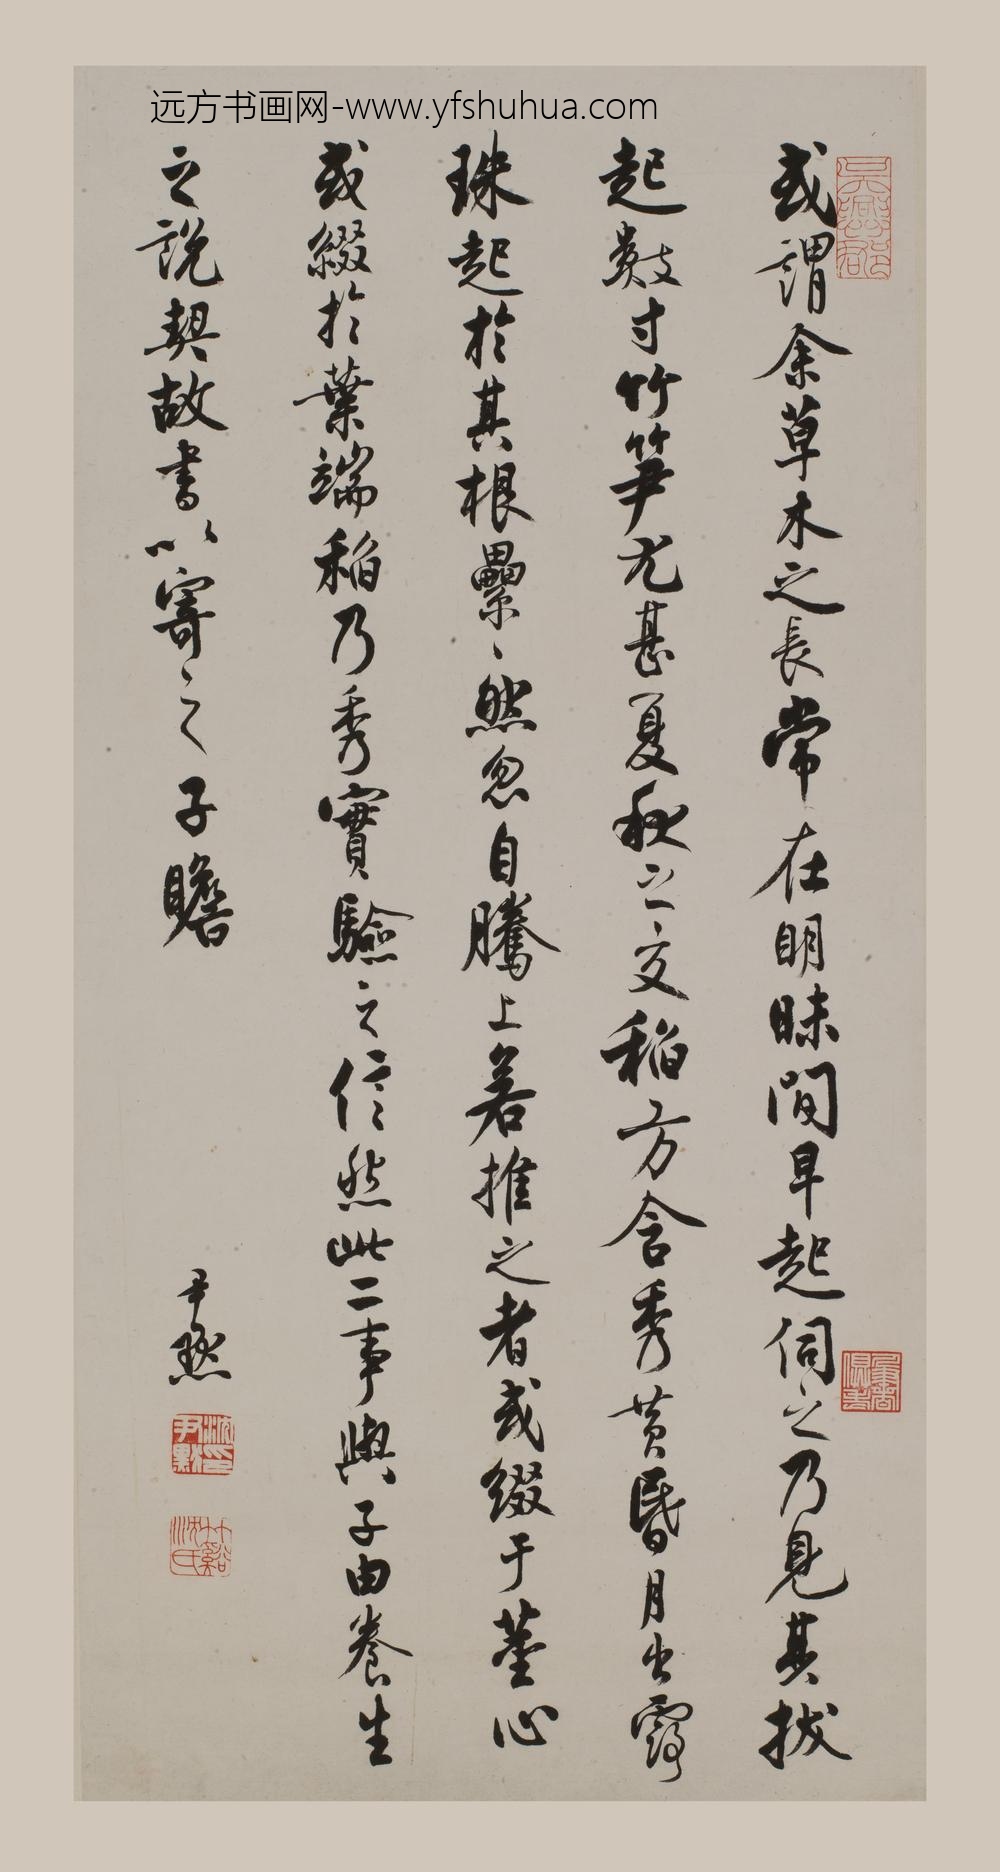 远方书画网-www.yfshuhua.com
或謂余草木之長常在明昧間早起伺之乃見其拔
起數寸竹筍尤甚夏秋之交稻方含秀黃昏月出露
珠起於其根纍纍然忽自騰上若推之者或綴于莖心
或綴於葉端稻乃秀實驗之信然此二事與子由養生
之說契故書以寄之子瞻
尹默
沈尹默印
竹谿沈氏